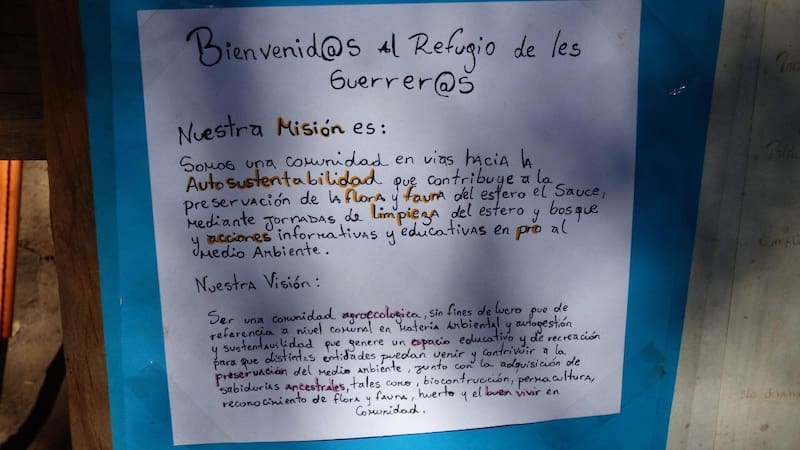 Bienvenid@s Al Refugio de les
Guerrer@s
Nuestra Misión es:
Somos una comunidad en vias hacia la
Autosustentabilidad que contribuye a la
preservación de la flora y fauna del estero el Sauce,
mediante jornadas de limpieza del estero y bosque
y acciones informativas y educativas en pro al
Medio Ambiente.
Nuestra Visión:
Ser una comunidad agroecologica, sin fines de lucro que de
referencia a nivel comunal en materia Ambiental y autogestión
y sustentavilidad que genere un espacio educativo y de recreación
para que distintas entidades puedan venir y contrivuir a la
preservación del medio Ambiente, junto con la adquisición de
sabidurias ancestrales, tales como, biocontrucción, permacultura,
reconocimiento de flora y fauna, huerto y el buen vivir en
Comunidad.